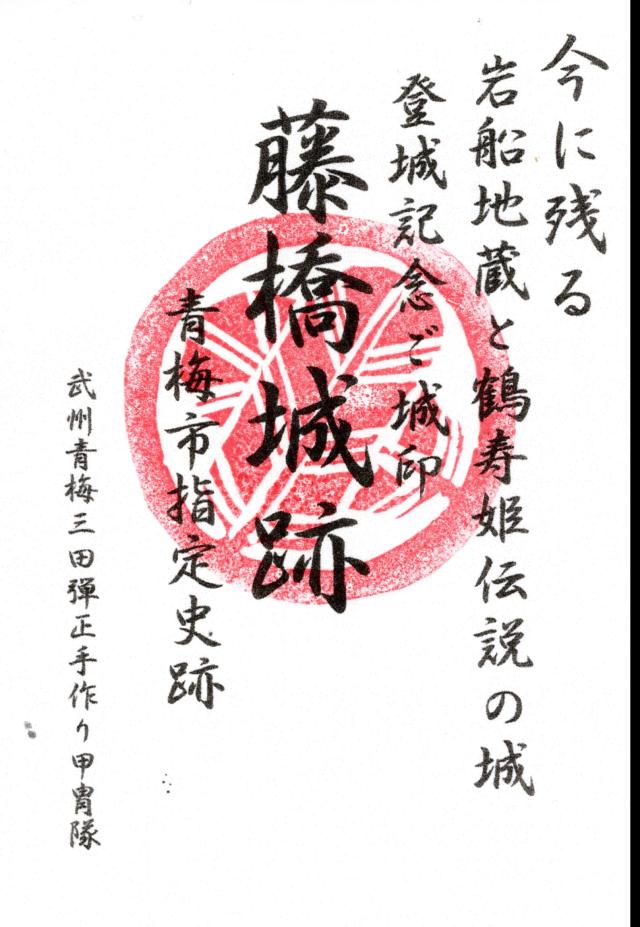 今に残る
岩船地蔵と鶴寿姫伝説の城
登城記念ご城印
藤橋城跡
青梅市指定史跡
武州青梅三田弾正手作り甲冑隊